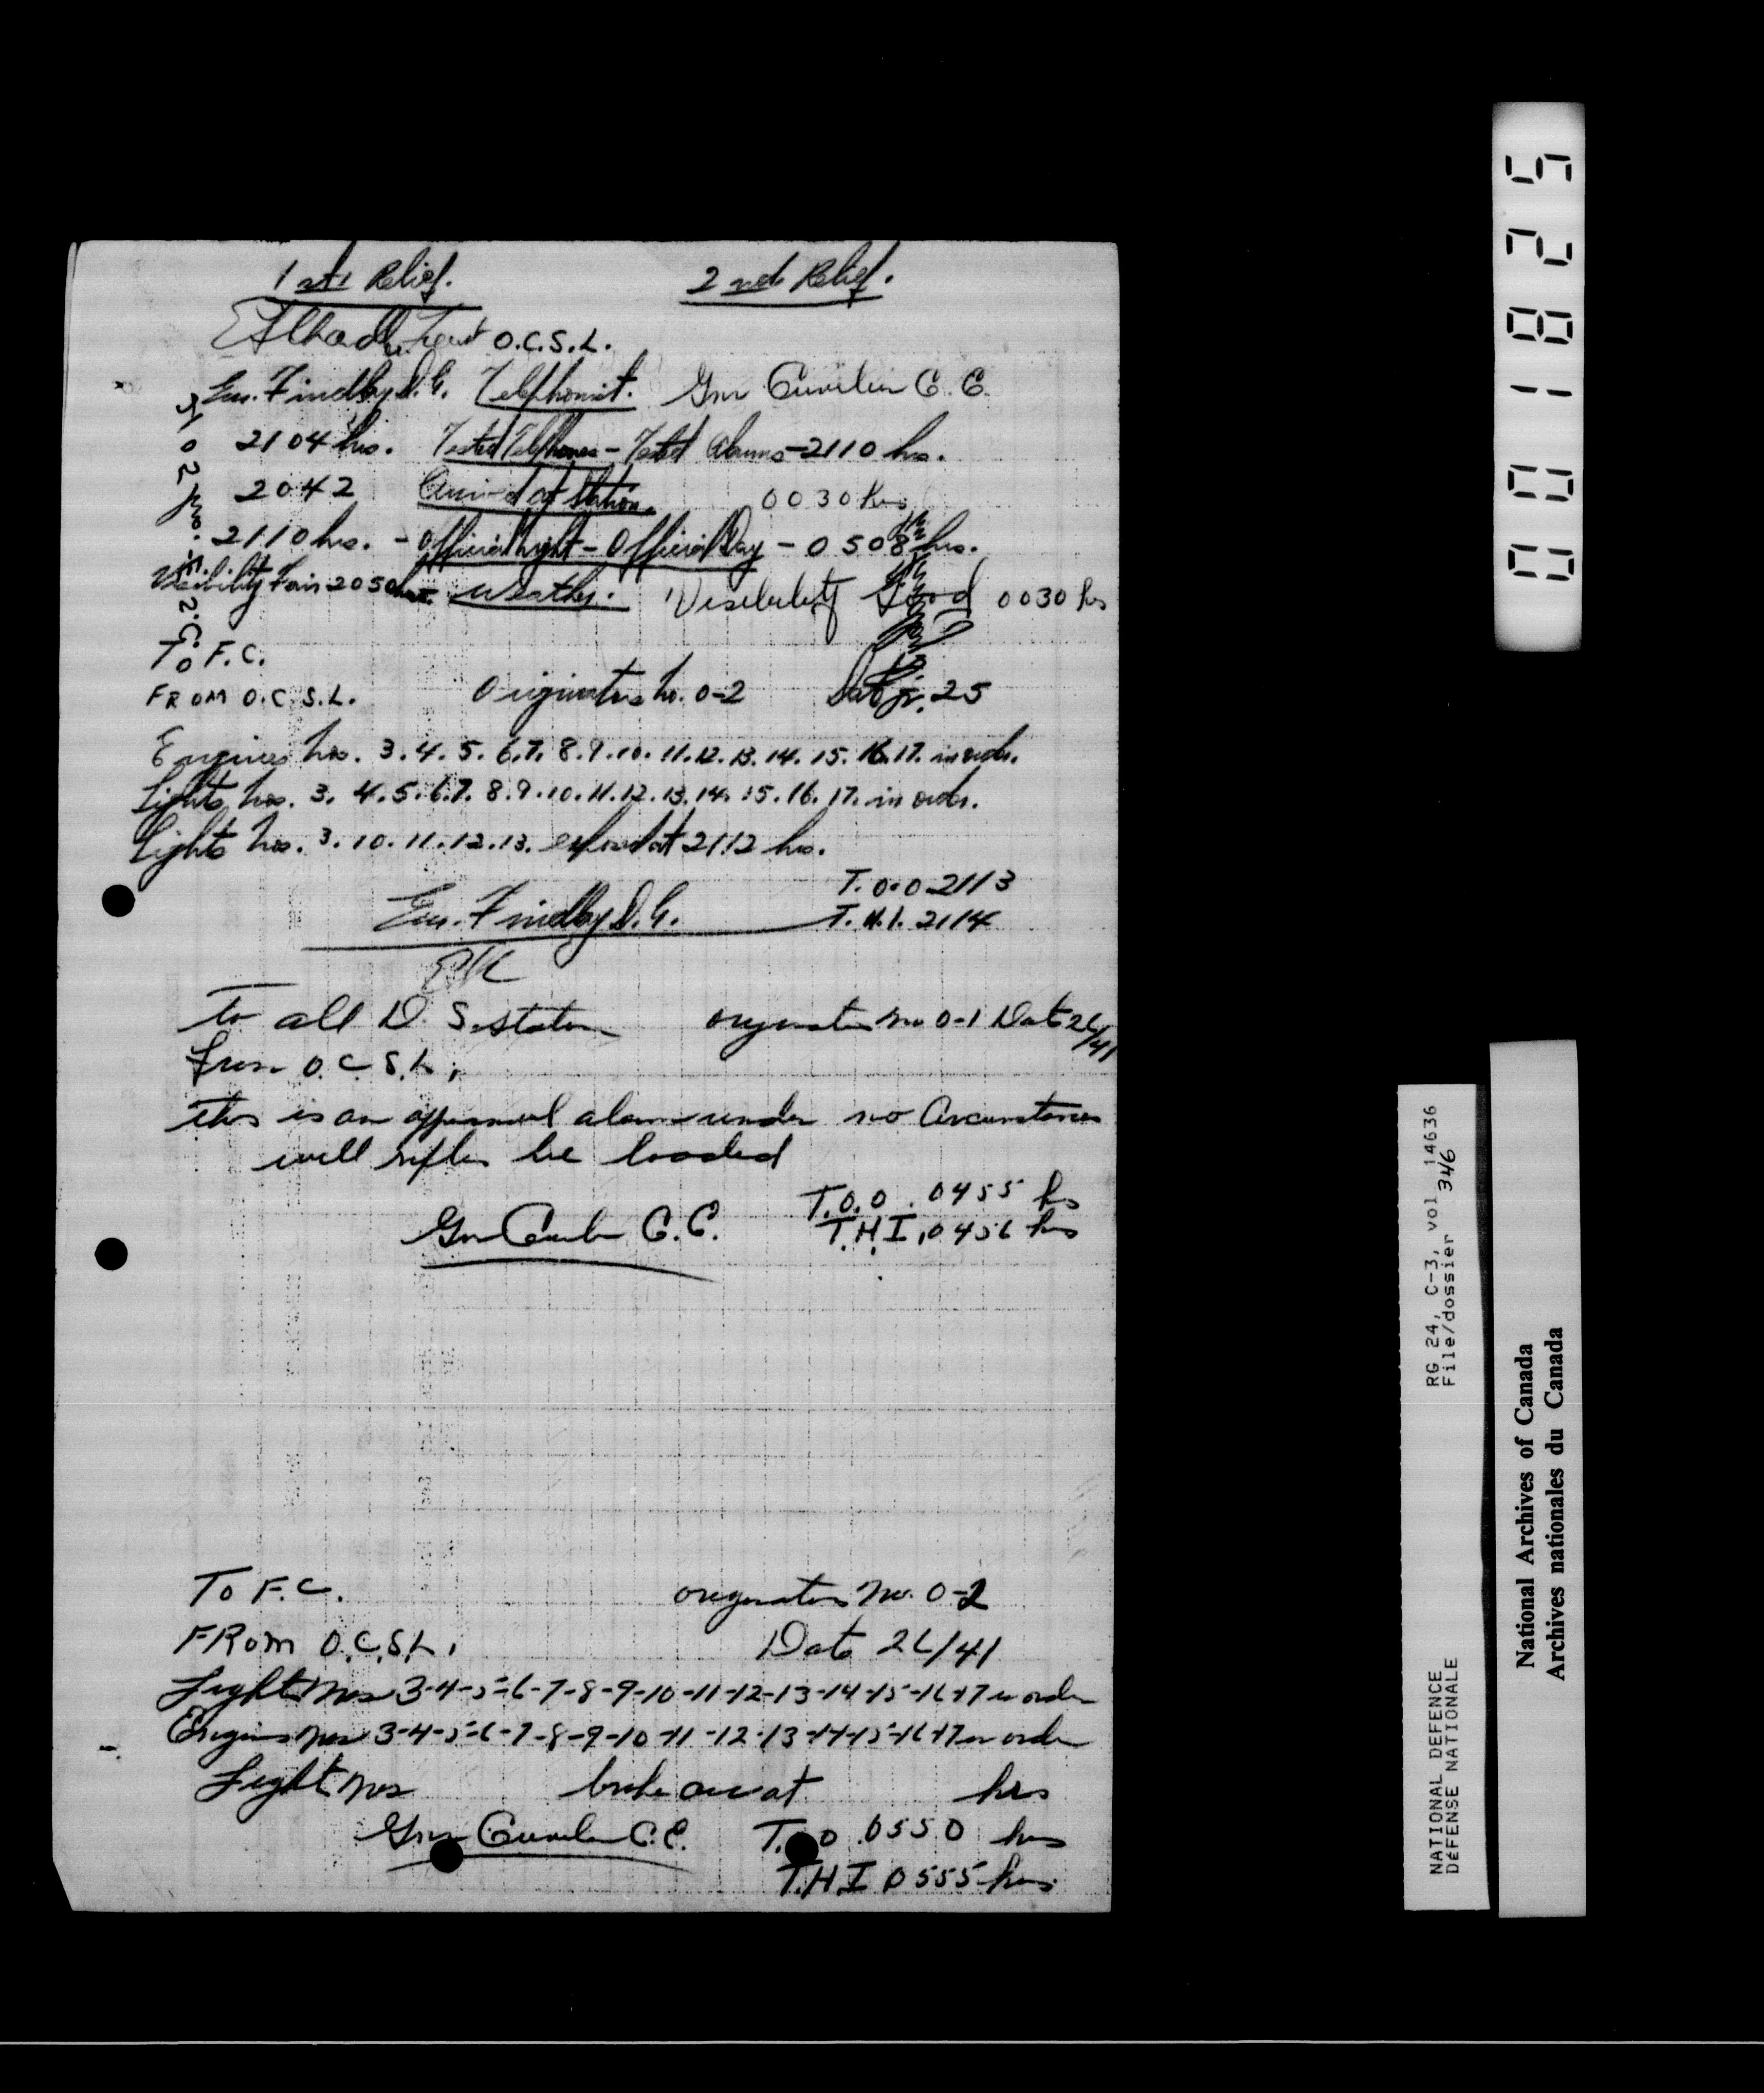 1st Relief. 2nd Relief.
O.C.S.L.
Gnr. Findlay D.G. Telephonist. Gnr C. C.
2104 hrs. Tested Telephones - Tested Alarms - 2110 hrs.
2042 Arrived at Station. 0030 hrs
2110 hrs. - Official Night - Official Day - 0508 hrs.
Visibility Fair 2050 hrs. Weather. Visibility Good 0030 hrs
To F.C.
FROM O.C.S.L. Originators No. 0-2 Date 25
Engines Nos. 3.4.5.6.7.8.9.10.11.12.13.14.15.16.17. in order.
Lights Nos. 3.4.5.6.7.8.9.10.11.12.13.14.15.16.17. in order.
Lights Nos. 3.10.11.12.13. exposed at 2112 hrs.
T.O.O 2113
Gnr. Findlay D.G. T.H.I. 2114
To all D. S. station originators no 0-1 Date 26/41
from O.C.S.L.
this is an alarm under no Circumstances
will rifles be loaded
T.O.O. 0455 hrs
Gnr C.C. T.H.I. 0456 hrs
To F.C. originators No. 0-2
FROM O.C.S.L. Date 26/41
Light Nos 3-4-5-6-7-8-9-10-11-12-13-14-15-16-17 in order
Engines Nos 3-4-5-6-7-8-9-10-11-12-13-14-15-16-17 in order
Light Nos at hrs
Gnr C.C. T.O.O 0550 hrs
T.H.I 0555 hrs
001825
RG 24, C-3, vol 14636
File/dossier 346
NATIONAL DEFENCE
DÉFENSE NATIONALE
National Archives of Canada
Archives nationales du Canada